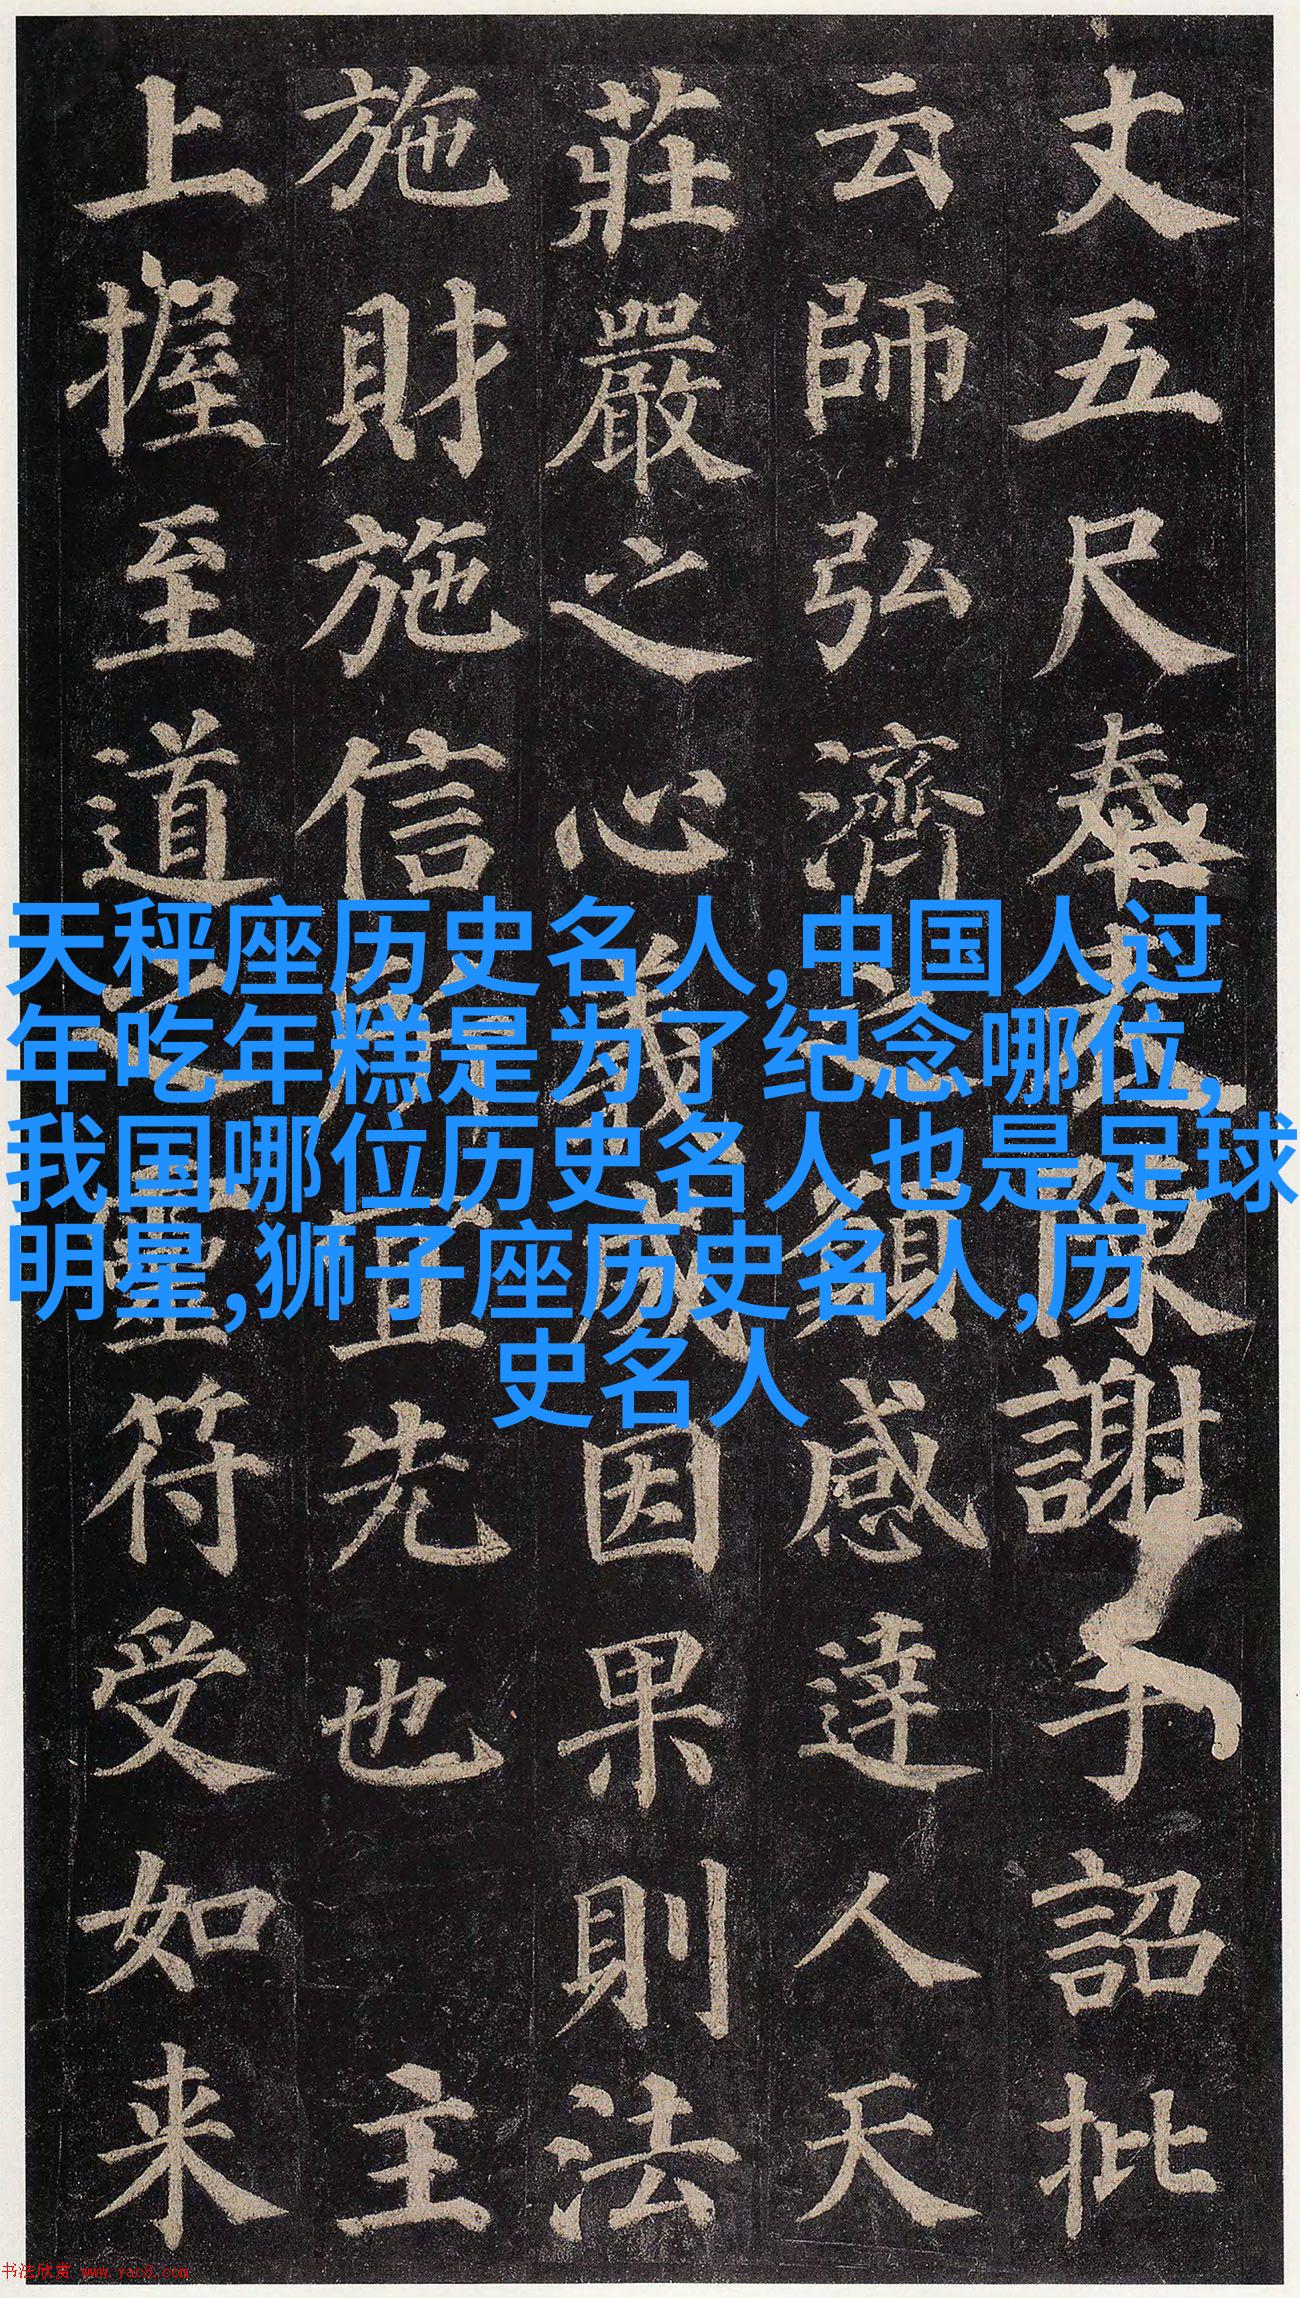 丈五尺奉表陳謝手詔批
云師弘濟之願感達人天
莊嚴之心義成因果則法
施財施信所宜先也 主
上握至道之靈符受如来
天秤座历史名人,中国人过
年吃年糕是为了纪念哪位,
我国哪位历史名人也是足球
明星,狮子座历史名人,历
史名人
书法欣赏 www.yac8.com